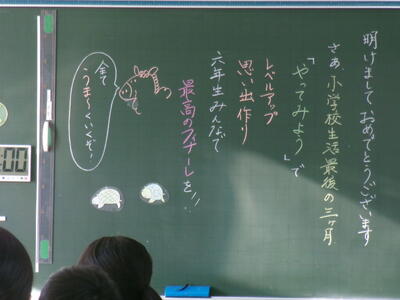 明けましておめでとうございます
さあ、小学校生活最後の三ヶ月
「やってみよう」で
レベルアップ
思い出作り
六年生みんなで
最高のフィナーレを!!
全て
うま〜くいくぞ!
:00